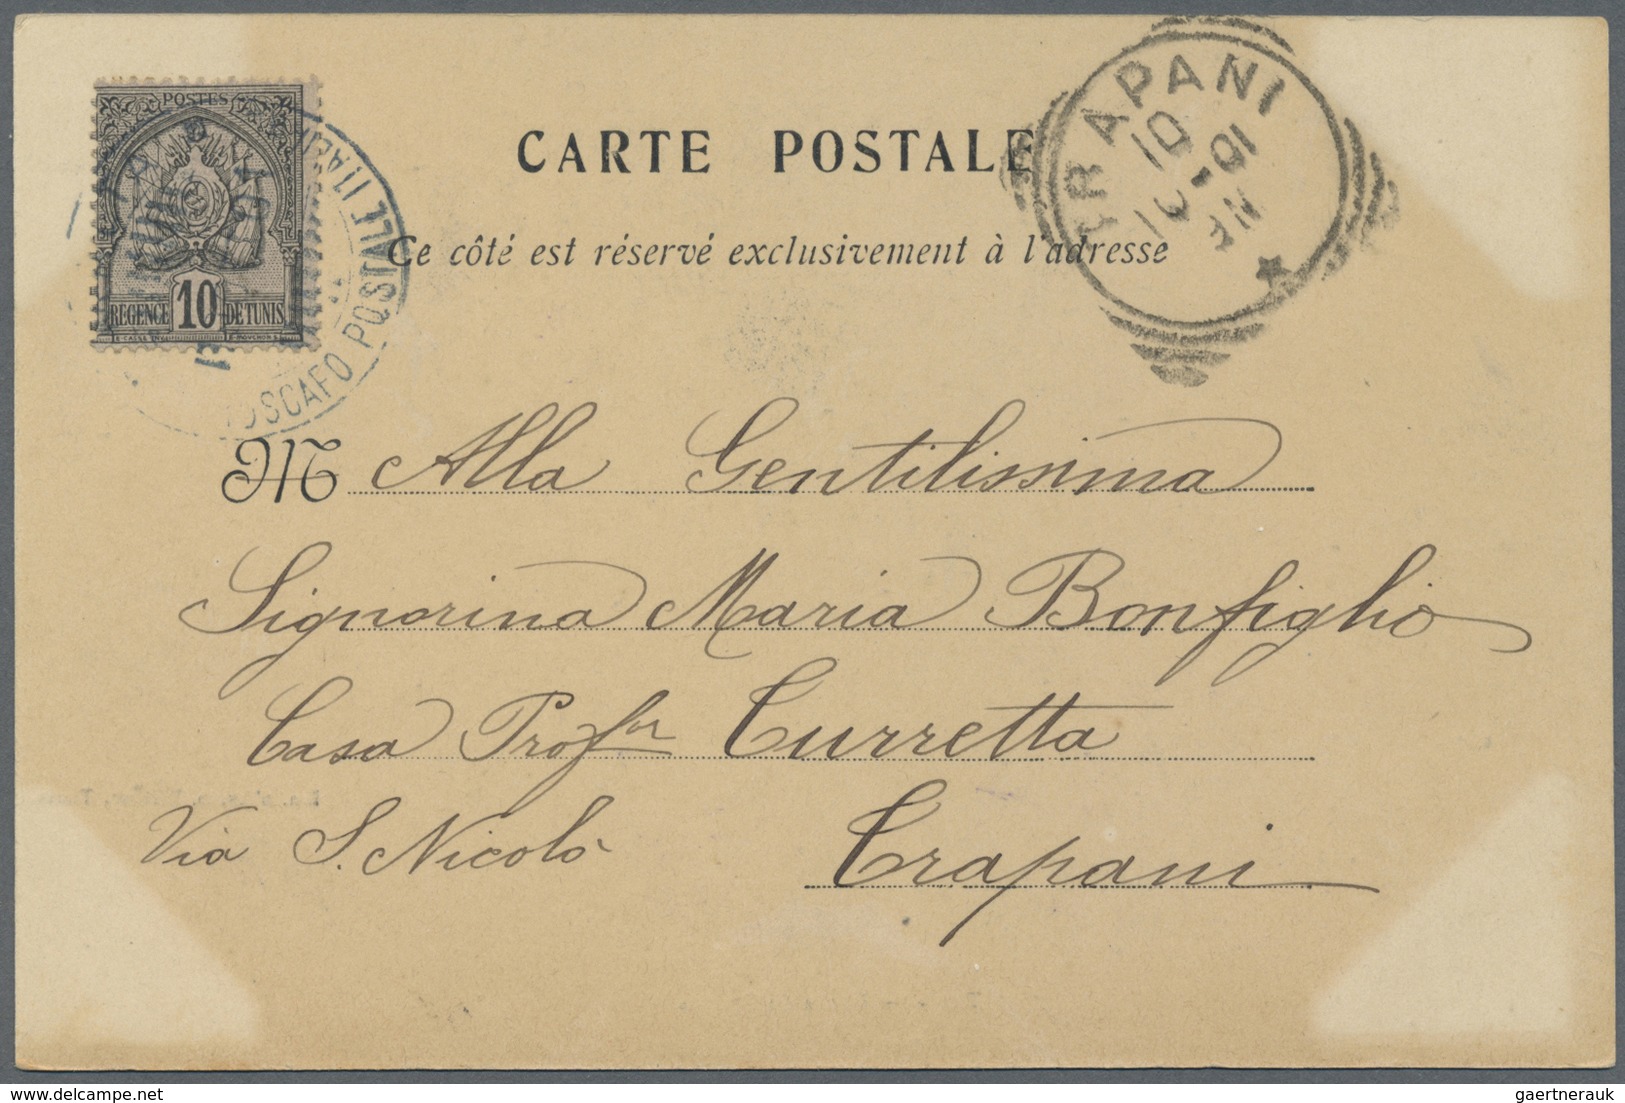 POSTES
10
REGENCE DE TUNIS
POSTALE ITALI
OSCAFO
TRAPANI
10
10-01
CARTE POSTALE
Ce côté est réservé exclusivement à l'adresse
M Alla Gentilissima
Signorina Maria Bonfiglio
Casa Profsor Curretta
Via S. Nicolò Trapani
gaertnerauk @ delcampe.net